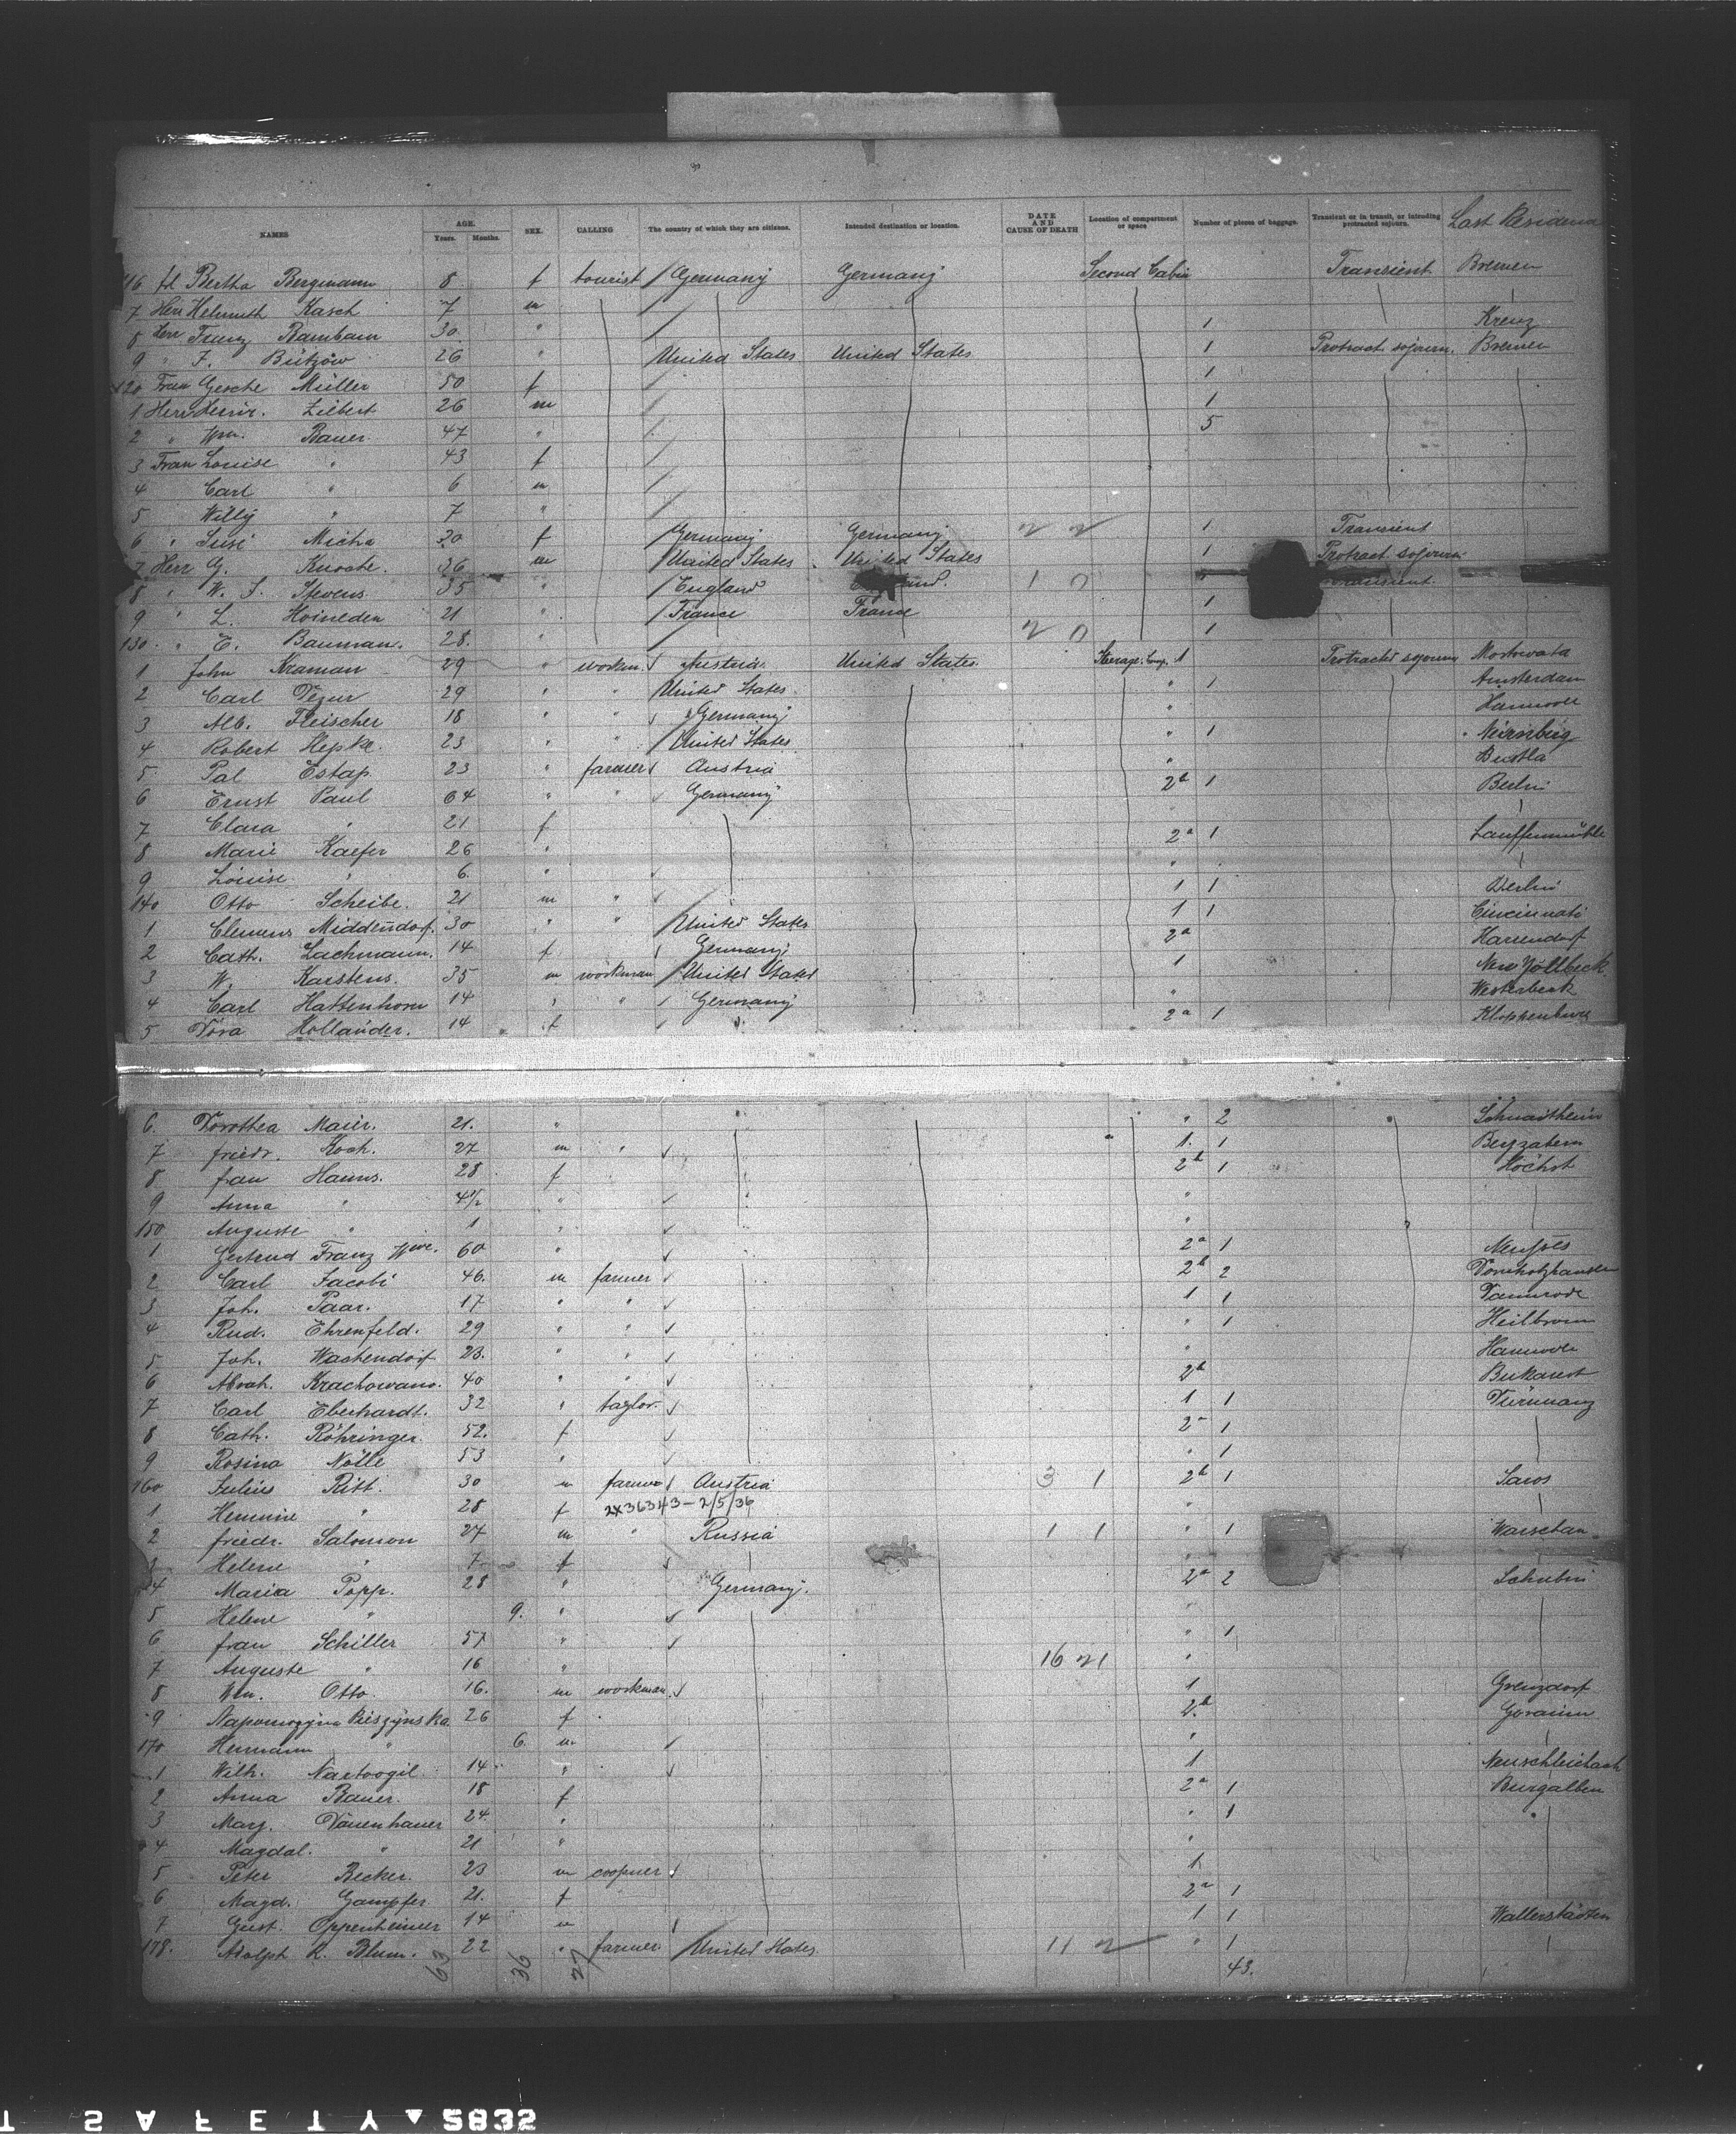 NAMES AGE. Years. Months. SEX. CALLING The country of which they are citizens. Intended destination or location. DATE AND CAUSE OF DEATH Location of compartment or space Number of pieces of baggage. Transient or in transit, or intending protracted sojourn. Last Residence
116 Bertha Bergmann 8 f tourist / Germany Germany Second Cabin Transient Bremen
7 Herr Helmuth Kasch 7 m / "
8 Herr Franz Bambam 30 " / 1 Krenz
9 " F. Bützow 26 " United States United States 1 Protract. sojourn. Bremen
120 Frau Gesche Müller 50 f / 1
1 Herr Heinr. Zilbert 26 m / 1
2 " Wm. Bauer 47 " / 5
3 Frau Louise " 43 f /
4 Carl " 6 m /
5 Willy " 7 " /
6 " Susi Micha 30 f / Germany Germany 2 2 1 Transient
7 Herr G. Knoche. 36 m / United States United States 1 Protract sojourn
8 " W. S. Stevens 35 " / England 1 0 Transient
9 " L. Hoineden 21 " / France France 1
130 " E. Bauman. 28. " / 2 0 1
1 John Kraman 29 " workm. Austria. United States. Steerage. Comp. 1 Protracted sojourn
2 Carl 29 " " / United States. " 1 Amsterdam
3 Alb. Fleischer 18 " " / Germany " Hannover
4 Robert Hepke. 23 " " / United States " 1 Nürnberg
5 Pal Estap 23 " farmer Austria "
6 Ernst Paul 64 " " Germany 2b 1 Berlin
7 Clara " 21 f
8 Marie Kaefer 26 " 2a 1 Lauffenmühle
9 Louise " 6. " "
140 Otto Scheibe. 21 m " 1 1 Berlin
1 Clemens Middendorf. 30 " " / United States 1 1 Cincinnati
2 Cath. Lachmann. 14 f Germany 2a
3 W. Karstens. 35 m workman / United States 1 New
4 Carl Hattenhorn 14 " " Germany " Westerbeck
5 Dora Hollander. 14 f " 2a 1
6. Dorothea Maier. 21. " " 2
7 friedr. Koch. 27 m " 1. 1
8 frau Hanns. 28 f 2b 1 Höchst
9 Anna " 4 1/2 " "
150 Auguste " 1 " "
1 Gertrud Franz Wwe. 60 " 2a 1
2 Carl Jacobi 46. m farmer 2b 2
3 Joh. Paar. 17 " " 1 1 Tannrode
4 Rud. Ehrenfeld. 29 " " " 1 Heilbronn
5 Joh. Wachendorf 23. " " " Hannover
6 Abrah. Krachowano. 40 " " 2b Bukarest
7 Carl Eberhardt. 32 " taylor. 1 1 Dürrmanz
8 Cath. Röhringer. 52. f 2a 1
9 Rosina Nölle 53 " " 1
160 Julius Ritt. 30 m farmer Austria 3 1 2b 1 Saros
1 Hermine " 28 f 2x36343-2/5/36 "
2 friedr. Salomon 27 m " Russia 1 1 " 1 Warschau
3 Helene " 7 f "
4 Maria Popp. 28 " Germany. 2a 2 Schubin
5 Helene " 9. " "
6 frau Schiller 57 " " 1
7 Auguste " 16 " 16 21 "
8 Wm. Otto 16. m workman. 1 Grenzdorf
9 26 f 2b
170 Hermann " 6. m "
1 Wilh. 14 " 1
2 Anna Bauer. 18 f 2a 1 Burgalben
3 Marg. Dauenhauer 24. " " 1 "
4 Magdal. " 21 " "
5 Peter Becker. 23 m coopner 1
6 Magd. Gampfer 21. f 2a 1
7 Gust. Oppenheimer 14 m 1 1 Wallerstädten
178. Adolph K. Blum. 22 " farmer / United States. 11 2 " 1
63 36 27 43.
T SAFETY 5832